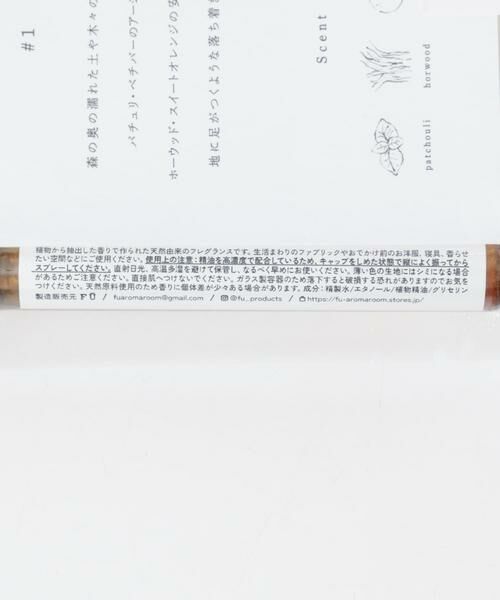 #1
森の奥の濡れた土や木々の
パチュリ・ベチバーのアー
ホーウッド・スイートオレンジの安
地に足がつくような落ち着き
Scent
horwood
patchouli
植物から抽出した香りで作られた天然由来のフレグランスです。生活まわりのファブリックやおでかけ前のお洋服、寝具、香らせ
たい空間などにご使用ください。使用上の注意：精油を高濃度で配合しているため、キャップをしめた状態で縦によく振ってから
スプレーしてください。直射日光、高温多湿を避けて保管し、なるべく早めにお使いください。薄い色の生地にはシミになる場合
があるためご注意ください。直接肌へつけないでください。ガラス製容器のため落下すると破損する恐れがありますのでお気を
つけください。天然原料使用のため香りに個体差が少々ある場合があります。成分：精製水/エタノール/植物精油/グリセリン
製造販売元 FŪ / fuaromaroom@gmail.com / @fu_products / https://fu-aromaroom.stores.jp/